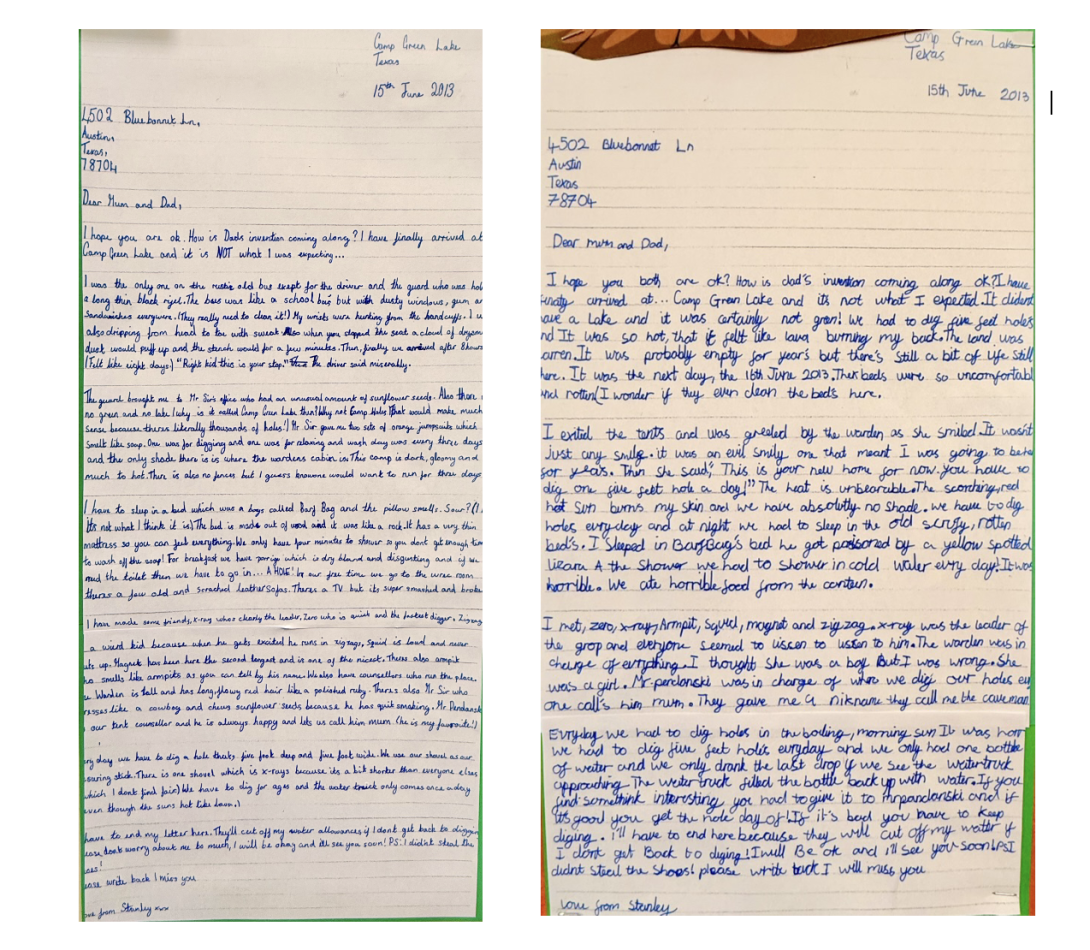 Camp Green Lake
Texas
15th June 2013
4502 Bluebonnet Ln,
Austin,
Texas,
78704
Dear Mum and Dad,
I hope you are ok. How is Dads invention coming along? I have finally arrived at
Camp Green Lake and it is NOT what I was expecting...
I was the only one on the rustic old bus exept for the driver and the guard who was hol
a long thin black rifel. The bus was like a school bus but with dusty windows, gum an
sandwiches everywere. (They really need to clean it!) My wrists were hurting from the handcuffs. I
also dripping from head to toe with sweat. Also when you slapped the seat a cloud of
dust would puff up and the stench would for a few minutes. Then, finally we arrived after 8 hours
(Felt like eight days.) "Right kid this is your stop." The driver said miserably.
The guard brought me to Mr Sir's office who had an unusual amount of sunflower seeds. Also there
no green and no lake (why is it called Camp Green Lake then? Why not Camp Holes That would make much
sense because theres literally thousands of holes!) Mr Sir gave me two sets of orange jumpsuits which
smelt like soap. One was for digging and one was for relaxing and wash day was every three days
and the only shade there is is where the wardens cabin is. This camp is dark, gloomy and
much to hot. There is also no fences but I guess knowone would want to run for three days
I have to sleep in a bed which was a boys called Barf Bag and the pillow smells. Sour? (I
its not what I think it is) The bed is made out of wood and it was like a rock. It has a very thin
mattress so you can feel everything. We only have four minutes to shower so you dont get enough tim
to wash off the soap! For breakfast we have porrige which is dry bland and disgusting and if we
need the toilet then we have to go in... A HOLE! In our free time we go to the wreck room
theres a few old and scrached leather sofas. Theres a TV but its super smashed and broke
I have made some friends, x-ray whos clearly the leader, Zero who is quiet and the fastest digger. Zigzag
a wierd kid because when he gets excited he runs in zigzags, Squid is loud and never
uts up. Magnet has been here the second longest and is one of the nicest. Theres also armpit
ho smells like armpits as you can tell by his name. We also have counsellers who run the place.
e Warden is tall and has long, flowy red hair like a polished ruby. Theres also Mr Sir who
resses like a cowboy and chews sunflower seeds because he has quit smoking. Mr Pendansk
our tent counseller and he is always happy and lets us call him mum (he is my favourite!)
ery day we have to dig a hole thats five foot deep and five foot wide. We use our shovel as our
asuring stick. There is one shovel which is x-rays because its a bit shorter than everyone elses
which I dont find fair) We have to dig for ages and the water truck only comes once a day
even though the suns hot like lava.)
have to end my letter here. They'll cut off my water allowances if I dont get back to digging
ease dont worry about me to much, I will be okay and ill see you soon! PS: I didnt steal the
oes!
ease write back I miss you
ove from Stanley xxx
Camp Green Lake
Texas
15th June 2013
4502 Bluebonnet Ln
Austin
Texas
78704
Dear mum and Dad,
I hope you both are ok? How is dad's invention coming along ok? I have
finaly arrived at... Camp Green Lake and its not what I expected. It didnt
ave a Lake and it was certainly not gren! We had to dig five feet holes
nd It was so hot, that it felt like lava burning my back. The land was
arren. It was probably empty for years but there's still a bit of life still
here. It was the next day, the 16th June 2013. Ther beds were so uncomfortabl
and rotten (I wonder if they even clean the beds here.
I exited the tents and was greeted by the warden as she smiled. It wasnt
Just any smile. it was an evil smily one that meant I was going to be here
for years. Then she said, "This is your new home for now. you have to
dig one five feet hole a day!" The heat is unbearible. The scorching, red
hot sun burns my skin and we have absolutly no shade. we have to dig
holes evryday and at night we had to sleep in the old scruffy, rotten
bed's. I sleeped in BarfBag's bed he got poisoned by a yellow spotted
lizard. A the shower we had to shower in cold water evry day! It was
horrible. We ate horrible food from the canteen.
I met, zero, x-ray, Armpit, Squid, magnet and zigzag. x-ray was the leader of
the grop and everyone seemed to lissen to lissen to him. The warden was in
charge of evrything. I thought she was a boy But I was wrong. She
was a girl. Mr pendanski was in charge of were we dig our holes ev
one call's him mum. They gave me a nikname they call me the caveman
Evryday we had to dig holes in the boiling, morning sun. It was horr
we had to dig five feet holes evryday and we only had one bottle
of water and we only drank the last drop if we see the watertruck
approaching. The watertruck filled the bottle back up with water. If you
find somethink interesting you had to give it to mrpendanski and if
its good you get the hole day of! If it's bad you have to keep
diging. I'll have to end here because they will cut off my water if
I dont get Back to diging! I will Be ok and i'll see you soon! PS I
didnt steal the shoes! please write back I will miss you
Love from Stanley